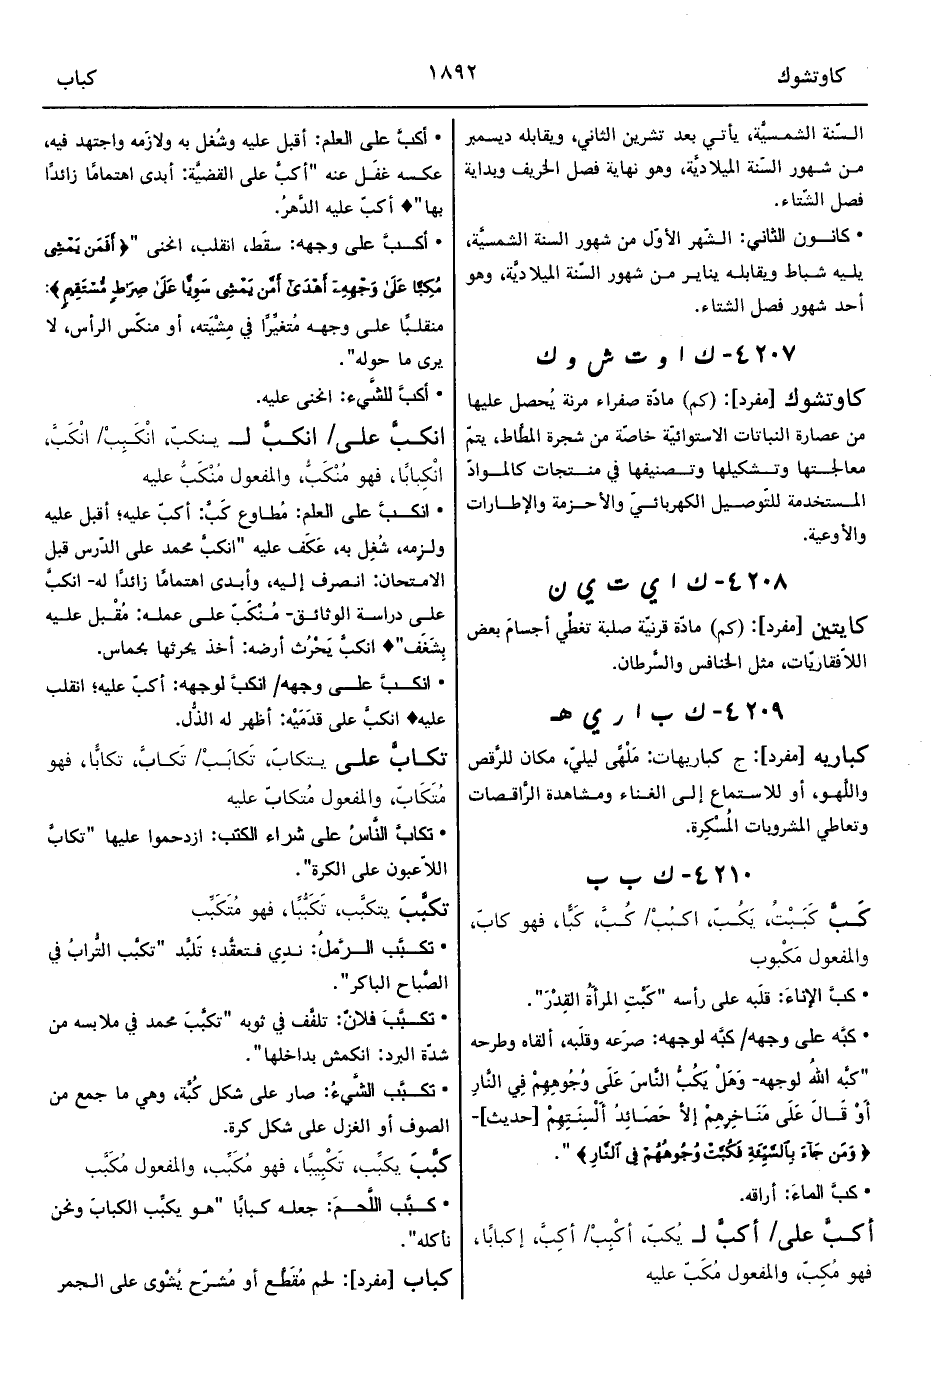 كاوتشوك
١٨٩٢
كباب
السّنة الشمسيَّة، يأتـي بعد تشرين الثاني، ويقابله ديسمبر
مـن شهـور السّنة الميلاديَّة، وهو نهاية فصل الخريف وبداية
فصل الشّتاء.
• كانـون الثّاني: الشّهر الأوّل من شهور السنة الشمسيَّة،
يليه شـباط ويقابلـه ينايـر مـن شهور السّنة الميلاديَّة، وهو
أحد شهور فصل الشتاء.
٤٢٠٧- ك ا و ت ش و ك
كاوتشوك [مفرد]: (كم) مادّة صفراء مرنة يُحصل عليها
من عصارة النباتات الاستوائيّة خاصّة من شجرة المطّاط، يتمّ
معالجـتها وتـشكيلها وتـصنيفها في منـتجات كالمـوادّ
المـستخدمة للتّوصـيل الكهربائـيّ والأحـزمة والإطـارات
والأوعية.
٤٢٠٨- ك ا ي ت ي ن
كايتين [مفرد]: (كم) مادّة قرنيّة صلبة تغطّي أجسامَ بعض
اللاّفقاريّات، مثل الخنافس والسَّرطان.
٤٢٠٩- ك ب ا ر ي هـ
كباريه [مفرد]: ج كباريهات: مَلْهًى ليليّ، مكان للرَّقص
واللَّهـو، أو للاستماع إلـى الغناء ومشاهدة الرَّاقصات
وتعاطي المشروبات المُسْكِرة.
٤٢١٠- ك ب ب
كَـبَّ كَبَبْتُ، يَكُبّ، اكبُبْ/ كُبَّ، كَبًّا، فهو كابّ،
والمفعول مَكْبوب
• كبَّ الإناءَ: قلَبه على رأسه "كَبَّتِ المرأةُ القِدْرَ".
• كبَّه على وجهه/ كبَّه لوجهه: صرَعه وقلَبه، ألقاه وطرحه
"كبَّه اللهُ لوجهه- وَهَلْ يَكُبُّ النَّاسَ عَلَى وُجُوهِهِمْ فِي النَّارِ
أَوْ قَـالَ عَلَى مَنَاخِرِهِمْ إِلاَّ حَصَائِدُ أَلْسِنَتِهِمْ [حديث]-
﴿ وَمَن جَآءَ بِٱلسَّيِّئَةِ فَكُبَّتْ وُجُوهُهُمْ فِى ٱلنَّارِ ﴾ ".
• كبَّ الماءَ: أراقه.
أكـبَّ على/ أكبَّ لـ يُكبّ، أكْبِبْ/ أكِبَّ، إكبابًا،
فهو مُكِبّ، والمفعول مُكَبّ عليه
• أكبَّ على العلم: أقبل عليه وشُغل به ولازَمه واجتهد فيه،
عكـسه غفَـل عنه "أكبَّ على القضيَّة: أبدى اهتمامًا زائدًا
بها"♦ أكبّ عليه الدَّهرُ.
• أكـبَّ علـى وجهه: سقَط، انقلب، انحنى "﴿ أَفَمَن يَمْشِى
مُكِبًّا عَلَىٰ وَجْهِهِۦٓ أَهْدَىٰٓ أَمَّن يَمْشِى سَوِيًّا عَلَىٰ صِرَٰطٍ مُّسْتَقِيمٍ ﴾:
منقلبًـا علـى وجهـه مُتغيِّرًا في مِشْيَته، أو منكّس الرأس، لا
يرى ما حوله".
• أكبَّ للشَّيء: انحنى عليه.
انكـبَّ علـى/ انكـبَّ لــ ينـكبّ، انْكَبِبْ/ انْكَبَّ،
انْكِبابًا، فهو مُنْكَبّ، والمفعول مُنْكَبٌّ عليه
• انكـبَّ علـى العلم: مُطـاوع كَبَّ: أكبّ عليه؛ أقبل عليه
ولـزمه، شُغِل به، عَكَف عليه "انكبَّ محمد على الدَّرس قبل
الامـتحان: انـصرف إلـيه، وأبـدى اهتمامًـا زائدًا له- انكبَّ
علـى دراسـة الوثائـق- مُـنْكَبّ علـى عملـه: مُقْـبل علـيه
بِشَغَف"♦ انكبَّ يَحْرُث أرضه: أخذ يحرثها بحماس.
• انكـبَّ علـى وجهه/ انكبَّ لوجهه: أكبّ عليه؛ انقلب
عليه♦ انكبَّ على قدَمَيْه: أظهر له الذُّل.
تكابَّ علـى يـتكابّ، تَكابَـبْ/ تَكـابَّ، تكابًّا، فهو
مُتَكابّ، والمفعول مُتكابّ عليه
• تكابَّ النَّاسُ على شراء الكتب: ازدحموا عليها "تكابَّ
اللاّعبون على الكرة".
تكبَّبَ يتكبَّب، تَكَبُّبًا، فهو مُتَكَبِّب
• تكـبَّبَ الـرَّملُ: نـدِي فـتعقَّد؛ تَلَبَّد "تكبَّب التُّرابُ في
الصَّباح الباكر".
• تكـبَّبَ فلانٌ: تلفَّف في ثوبه "تكبَّبَ محمد في ملابسه من
شدّة البرد: انكمش بداخلها".
• تكـبَّب الشَّيءُ: صار على شكل كُبَّة، وهي ما جمع من
الصوف أو الغزل على شكل كرة.
كبَّبَ يكبِّب، تَكْبِيبًا، فهو مُكَبِّب، والمفعول مُكَبَّب
• كـبَّب اللَّحـمَ: جعلـه كـبابًا "هـو يكبِّب الكبابَ ونحن
نأكله".
كباب [مفرد]: لحم مُقَطَّع أو مُشرّح يُشْوى على الـجمر